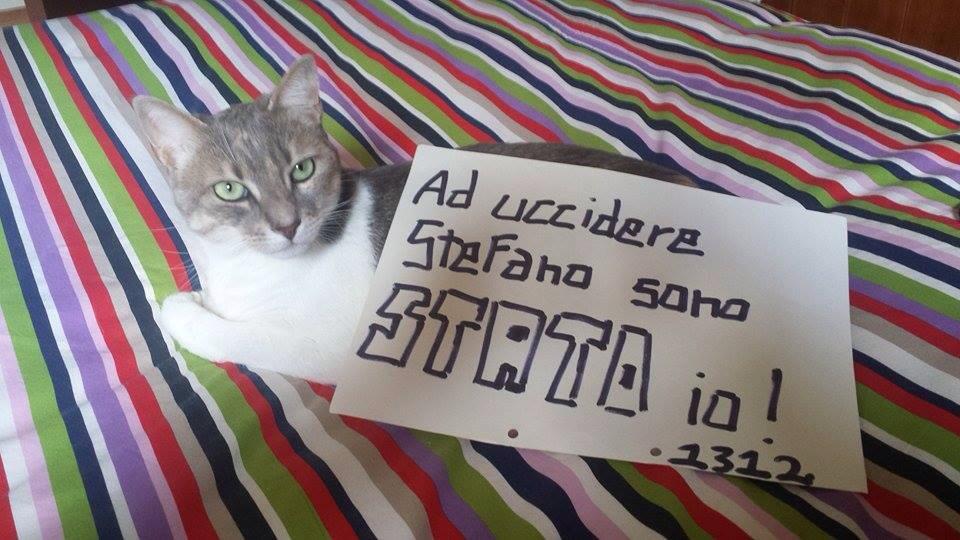 Ad uccidere
Stefano sono
STATO io!
.1312.